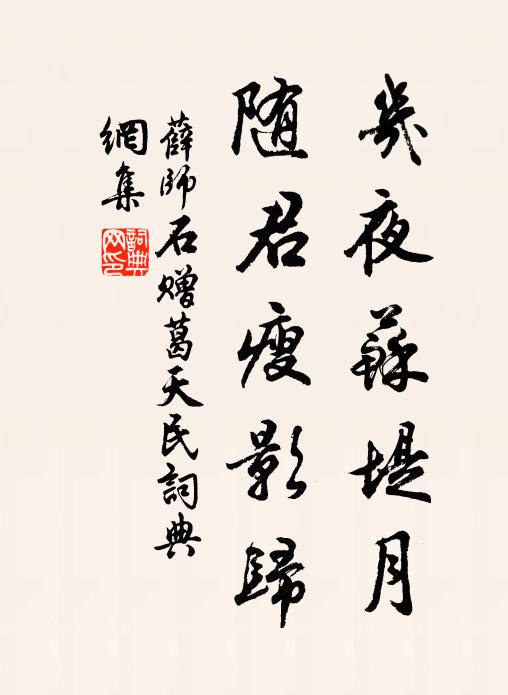 幾夜蘇堤月
随君瘦影歸
薛師石贈葛天民詞典
網集
詞典
网印